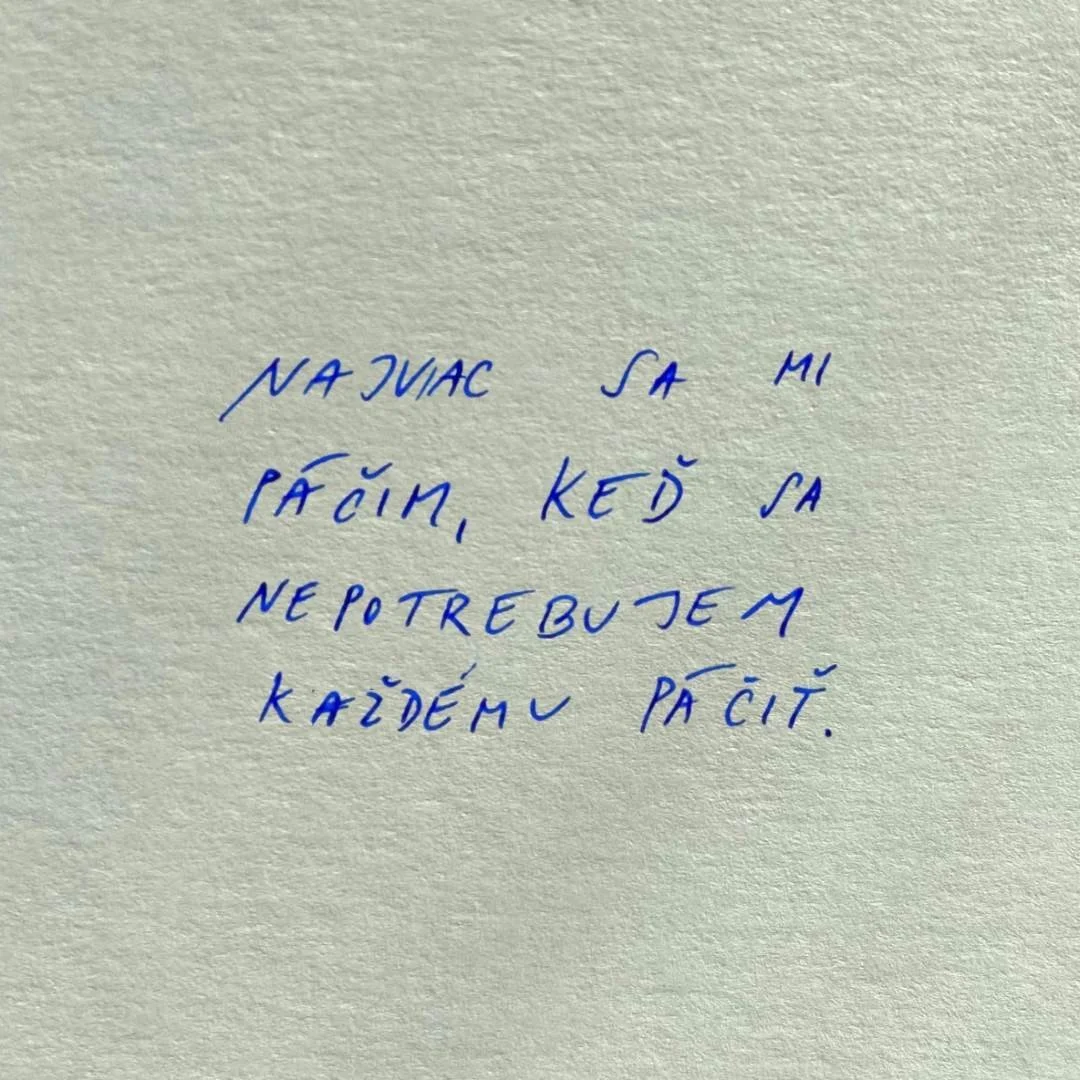 NAJVIAC SA MI
PÁČIM, KEĎ SA
NEPOTREBUJEM
KAŽDÉMU PÁČIŤ.